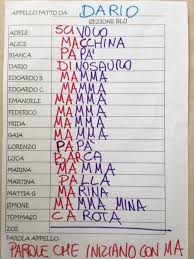 APPELLO FATTO DA DARIO
SEZIONE BLU
ADELE SCIVOLO
ALICE MACCHINA
BIANCA PAPA'
DARIO DINOSAURO
EDOARDO B MAMMA
EDOARDO C MAMMA
EMANUELE MAMMA
FEDERICO MAMMA
FRIDA MAMMA
GAIA MAMMA
LORENZO PAPA
LUCA BARCA
MARINA MAMMA
MARTINA PALLA
MATTIA G MARINA
SIMONE MAMMA MINA
TOMMASO CAROTA
ZOE
PAROLA APPELLO:
PAROLE CHE INIZIANO CON MA